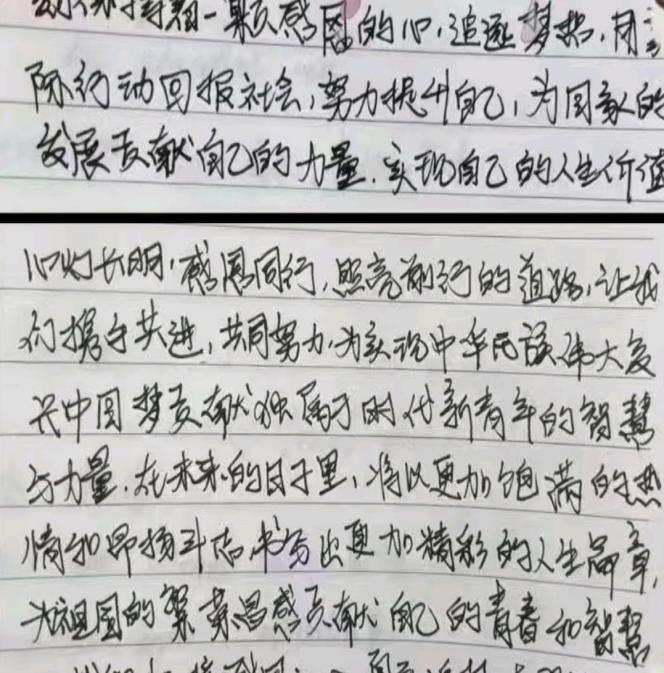 怀揣着一颗感恩的心,追逐梦想,用实
际行动回报社会,努力提升自己,为国家的
发展贡献自己的力量.实现自己的人生价值
心灯长明,感恩同行,照亮前行的道路,让我
们携手共进,共同努力,为实现中华民族伟大复
兴中国梦贡献独属于时代新青年的智慧
与力量.在未来的日子里,将以更加饱满的热
情和昂扬斗志,书写出更加精彩的人生篇章,
为祖国的繁荣昌盛贡献自己的青春和智慧